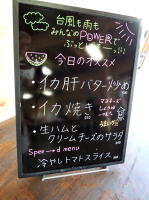 台風も雨も
みんなのPOWER で
ぶっと
今日のオススメ
・イカ肝バター炒め
・イカ焼き
マヨネーズ
しょうゆ
・生ハムと
クリームチーズのサラダ
Speed menu
冷やしトマトスライス